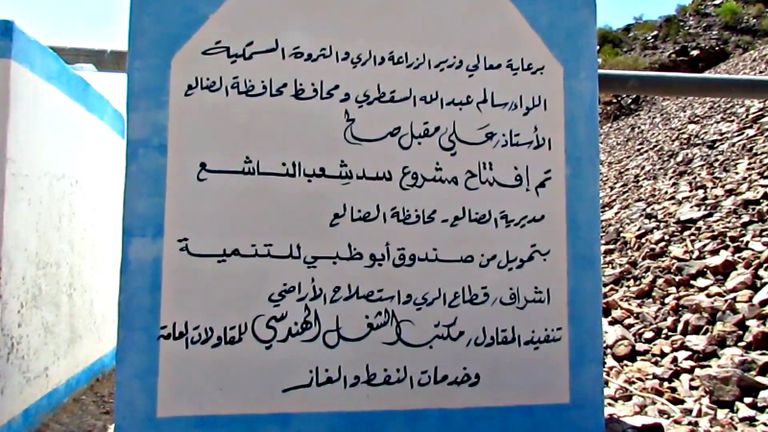 برعاية معالي وزير الزراعة والري والثروة السمكية
اللواء/ سالم عبدالله السقطري ومحافظ محافظة الضالع
الأستاذ/ علي مقبل صالح
تم إفتتاح مشروع سد شِعب الناشع
مديرية الضالع - محافظة الضالع
بتمويل من صندوق أبوظبي للتنمية
اشراف/ قطاع الري واستصلاح الأراضي
تنفيذ المقاول/ مكتب الشغل الهندسي للمقاولات العامة
وخدمات النفط والغاز